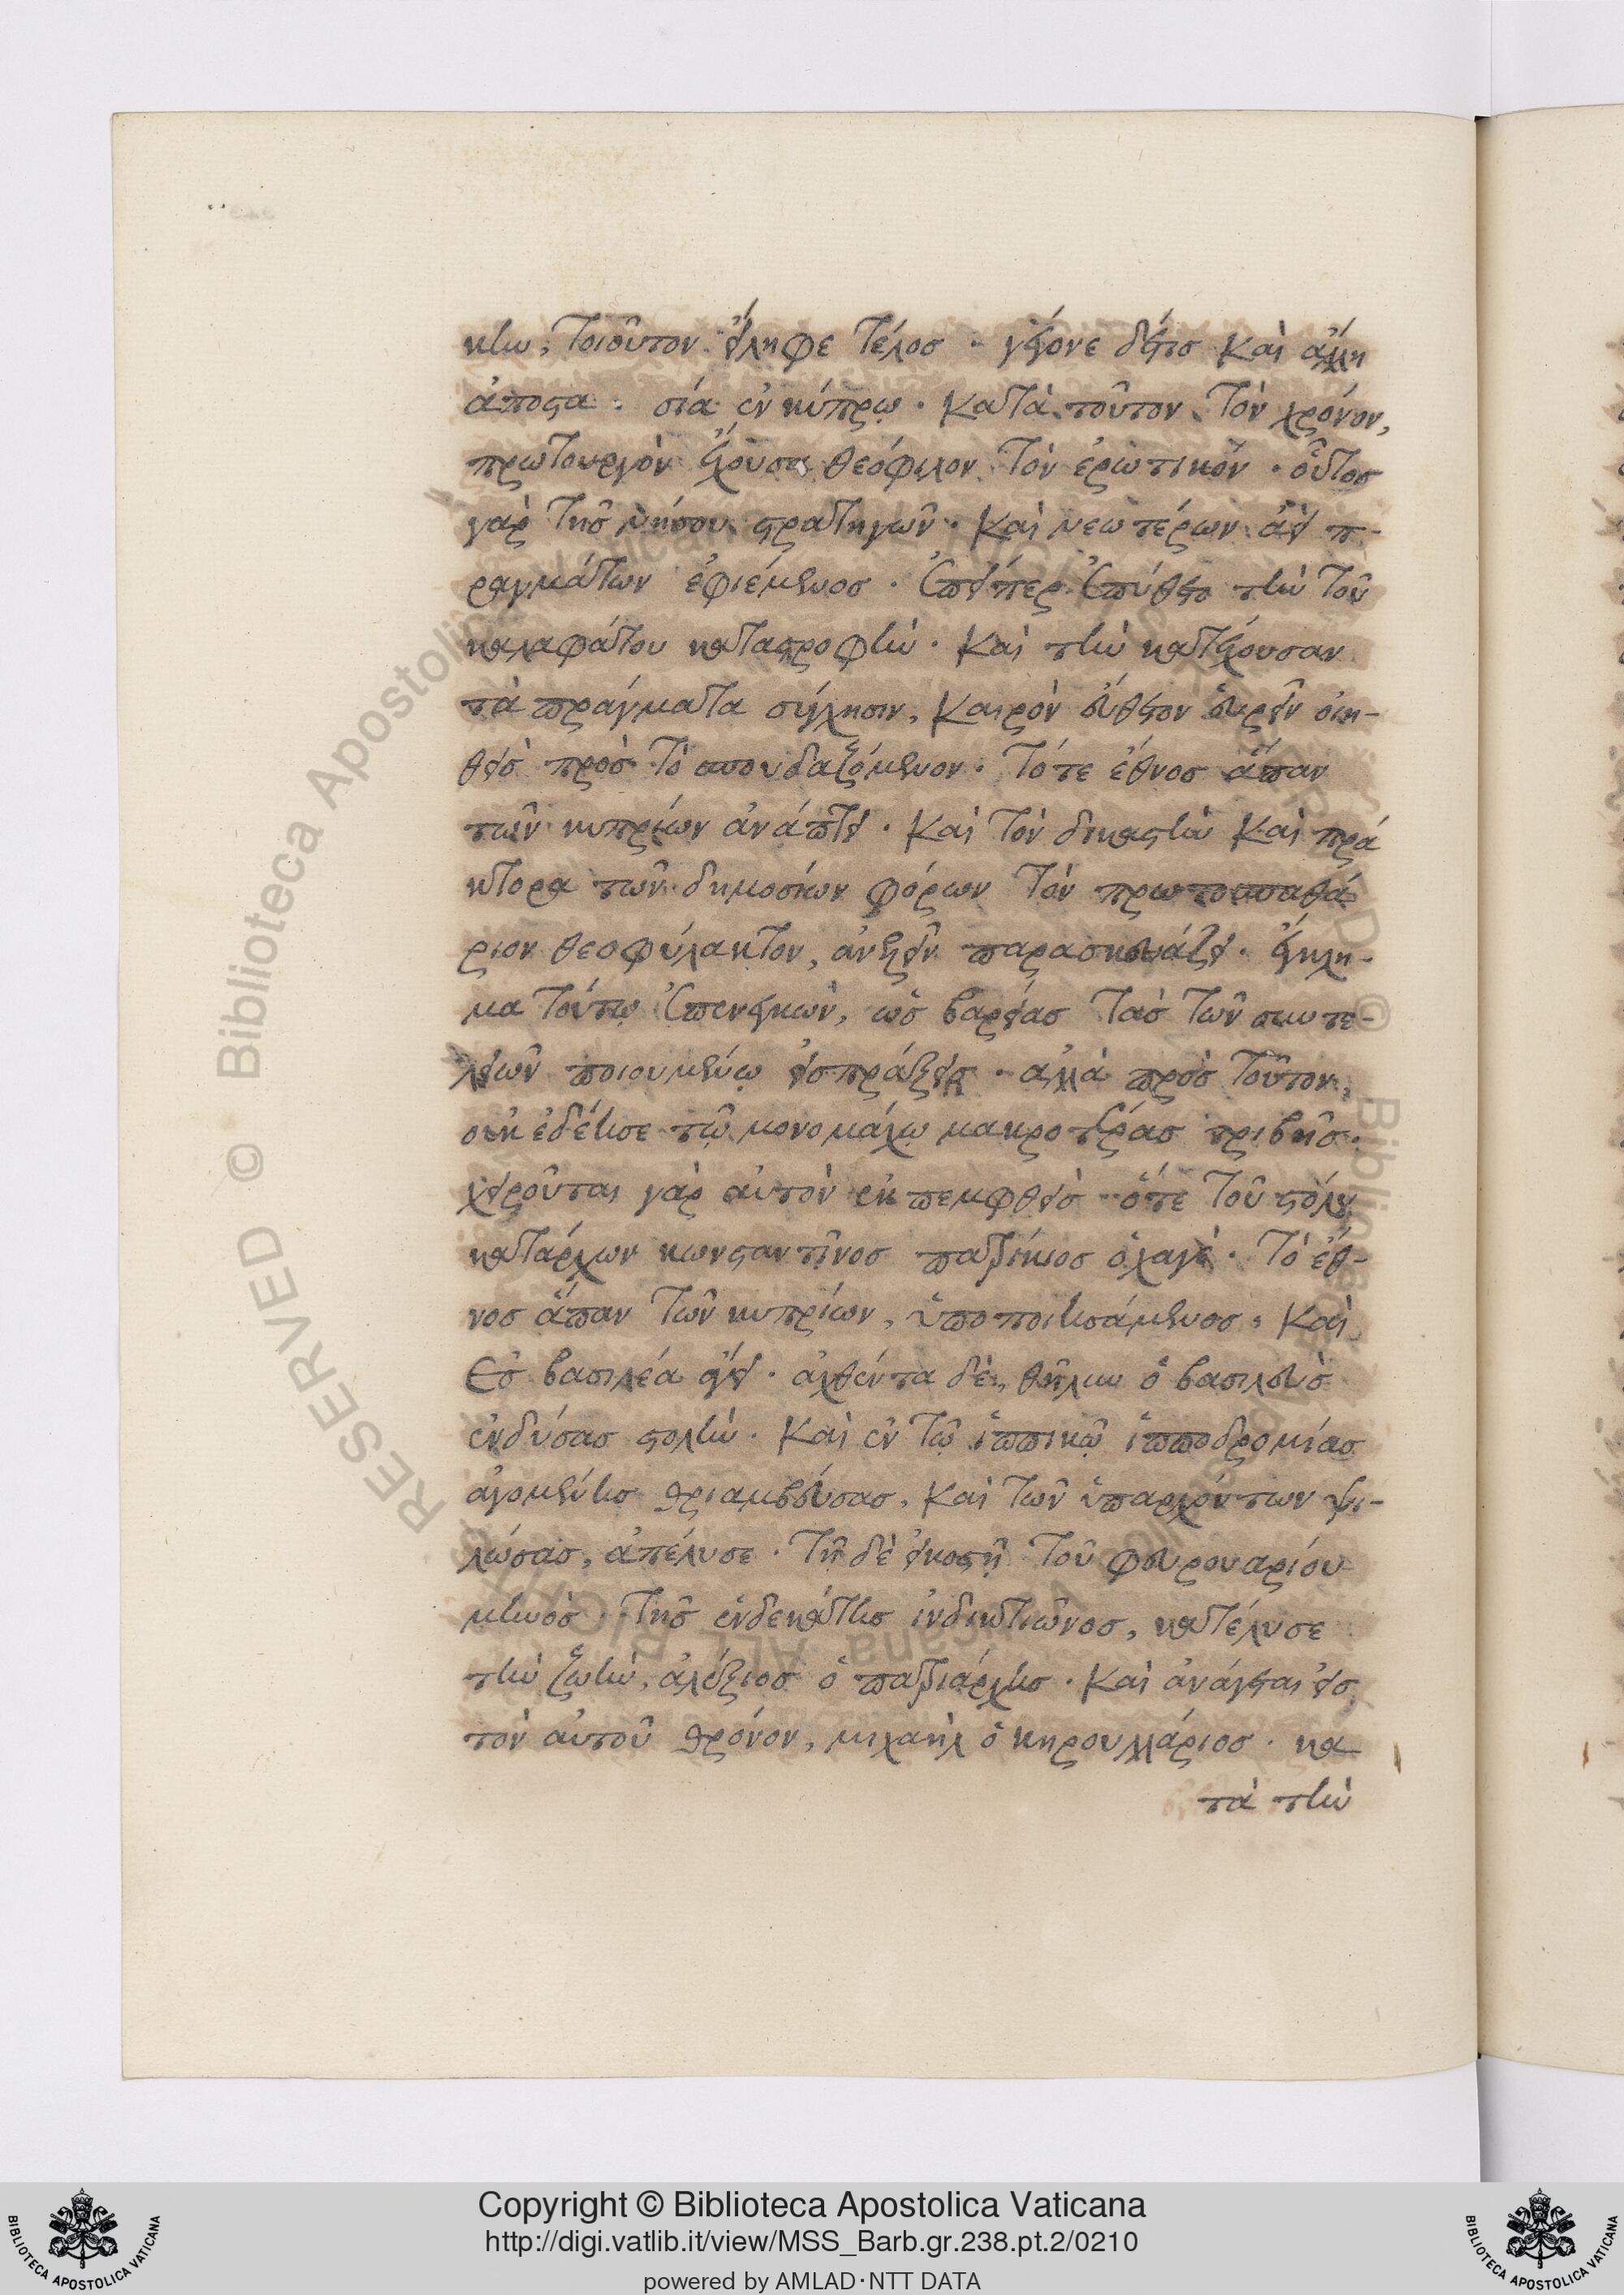 κην, τοιοῦτον εἴληφε τέλος · γέγονε δέτις καὶ ἄλλη
ἀποστα · σία ἐν κύπρω · κατὰ τοῦτον τὸν χρόνον,
πρωτουργὸν ἔχουσα θεόφιλον τὸν ἐρωτικόν · οὗτος
γὰρ τῆς νήσου στρατηγῶν · καὶ νεωτέρων ἀεὶ π-
ραγμάτων ἐφιέμενος · ἐπείπερ ἐπύθετο τὴν τοῦ
καλαφάτου καταστροφὴν · καὶ τὴν κατέχουσαν
τὰ πράγματα σύγχησιν, καιρὸν εὔθετον εὑρεῖν οἰη-
θεὶς πρὸς τὸ σπουδαζόμενον · τό τε ἔθνος ἅπαν
τῶν κυπρίων ἀνάπτει · καὶ τὸν δικαστὴν καὶ πρά
κτορα τῶν δημοσίων φόρων τὸν πρωτοσπαθά
ριον θεοφύλακτον, ἀνελεῖν παρασκευάζει · ἔγκλη-
μα τούτω ἐπενεγκὼν, ὡς βαρείας τὰς τῶν συντε-
λειῶν ποιουμένω εἰσπράξεις · ἀλλὰ πρὸς τοῦτον,
οὐκ ἐδέησε τῷ μονομάχω μακροτέρας τριβῆς ·
χειροῦται γὰρ αὐτὸν ἐκπεμφθεὶς ὅτε τοῦ στόλου
κατάρχων κωνσταντῖνος πατρίκιος ὁ χαγὲ · τὸ ἔθ-
νος ἅπαν τῶν κυπρίων, ὑποποιησάμενος, καὶ
ἐς βασιλέα ἄγει · ἀχθέντα δὲ, θῆλυν ὁ βασιλεὺς
ἐνδύσας στολὴν · καὶ ἐν τῷ ἱππικῷ ἱπποδρομίας
ἀγομένης θριαμβεύσας, καὶ τῶν ὑπαρχόντων ψι-
λώσας, ἀπέλυσε · τῇ δὲ εἰκοστῇ τοῦ φευρουαρίου
μηνὸς τῆς ἑνδεκάτης ἰνδικτιῶνος, κατέλυσε
τὴν ζωὴν, ἀλέξιος ὁ πατριάρχης · καὶ ἀνάγεται εἰς
τὸν αὐτοῦ θρόνον, μιχαὴλ ὁ κηρουλλάριος · κα
τὰ τὴν
Copyright © Biblioteca Apostolica Vaticana
http://digi.vatlib.it/view/MSS_Barb.gr.238.pt.2/0210
powered by AMLAD·NTT DATA